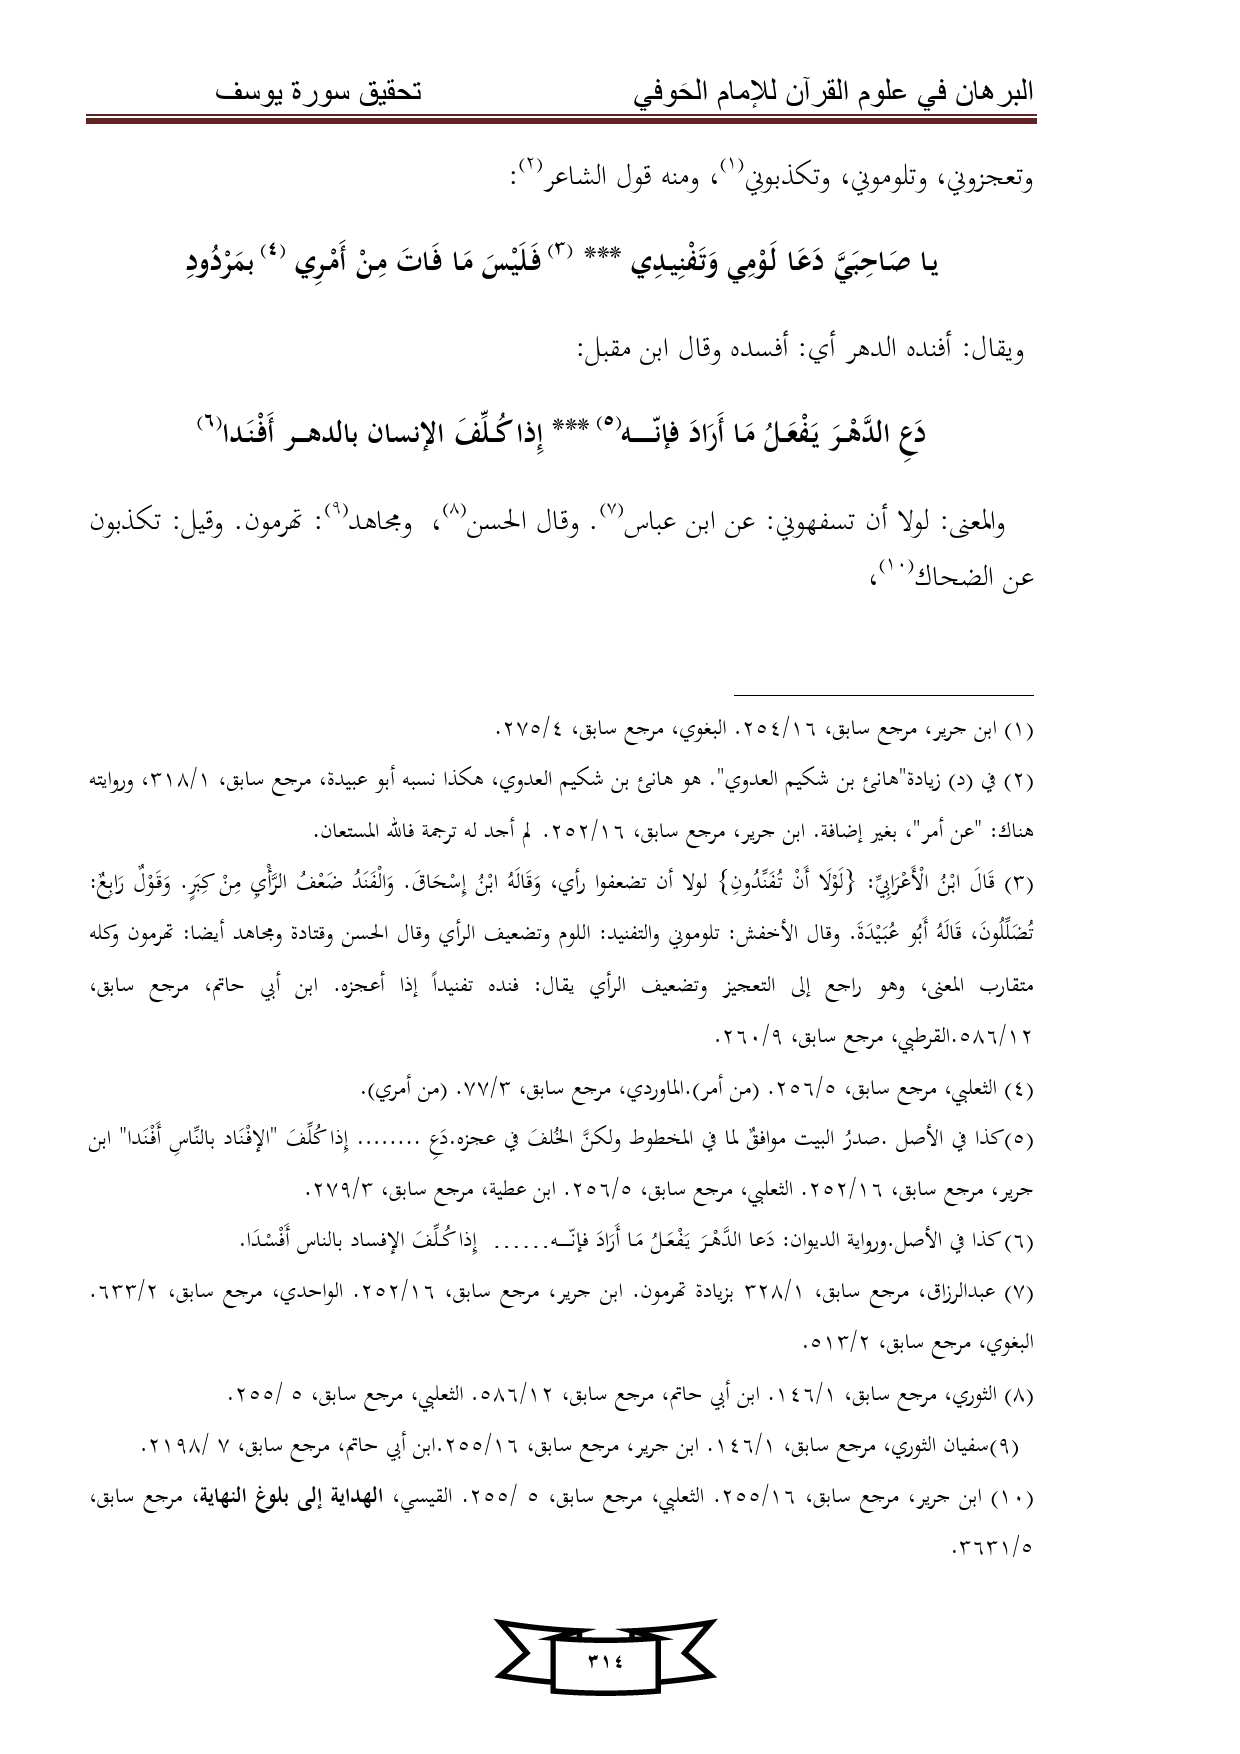 البرهان في علوم القرآن للإمام الحَوفي تحقيق سورة يوسف
وتعجزوني، وتلوموني، وتكذبوني(١)، ومنه قول الشاعر(٢):
يا صَاحِبَيَّ دَعَا لَوْمِي وَتَفْنِيدِي *** (٣) فَلَيْسَ مَا فَاتَ مِنْ أَمْرِي (٤) بمَرْدُودِ
ويقال: أفنده الدهر أي: أفسده وقال ابن مقبل:
دَعِ الدَّهْرَ يَفْعَلُ مَا أَرَادَ فإنّـــه(٥) *** إِذا كُلِّفَ الإنسان بالدهــر أَفْنَدا(٦)
والمعنى: لولا أن تسفهوني: عن ابن عباس(٧). وقال الحسن(٨)، ومجاهد(٩): تهرمون. وقيل: تكذبون
عن الضحاك(١٠)،
(١) ابن جرير، مرجع سابق، ٢٥٤/١٦. البغوي، مرجع سابق، ٢٧٥/٤.
(٢) في (د) زيادة"هانئ بن شكيم العدوي". هو هانئ بن شكيم العدوي، هكذا نسبه أبو عبيدة، مرجع سابق، ٣١٨/١، وروايته
هناك: "عن أمر"، بغير إضافة. ابن جرير، مرجع سابق، ٢٥٢/١٦. لم أجد له ترجمة فالله المستعان.
(٣) قَالَ ابْنُ الْأَعْرَابِيِّ: {لَوْلَا أَنْ تُفَنِّدُونِ} لولا أن تضعفوا رأي، وَقَالَهُ ابْنُ إِسْحَاقَ. وَالْفَنَدُ ضَعْفُ الرَّأْيِ مِنْ كِبَرٍ. وَقَوْلٌ رَابِعٌ:
تُضَلِّلُونَ، قَالَهُ أَبُو عُبَيْدَةَ. وقال الأخفش: تلوموني والتفنيد: اللوم وتضعيف الرأي وقال الحسن وقتادة ومجاهد أيضا: تهرمون وكله
متقارب المعنى، وهو راجع إلى التعجيز وتضعيف الرأي يقال: فنده تفنيداً إذا أعجزه. ابن أبي حاتم، مرجع سابق،
٥٨٦/١٢.القرطبي، مرجع سابق، ٢٦٠/٩.
(٤) الثعلبي، مرجع سابق، ٢٥٦/٥. (من أمر).الماوردي، مرجع سابق، ٧٧/٣. (من أمري).
(٥)كذا في الأصل .صدرُ البيت موافقٌ لما في المخطوط ولكنَّ الخُلفَ في عجزه.دَعِ ........ إِذا كُلِّفَ "الإفْنَاد بالنِّاسِ أَفْنَدا" ابن
جرير، مرجع سابق، ٢٥٢/١٦. الثعلبي، مرجع سابق، ٢٥٦/٥. ابن عطية، مرجع سابق، ٢٧٩/٣.
(٦)كذا في الأصل.ورواية الديوان: دَعا الدَّهْرَ يَفْعَلُ مَا أَرَادَ فإنّـــه...... إِذا كُلِّفَ الإفساد بالناس أَفْسْدَا.
(٧) عبدالرزاق، مرجع سابق، ٣٢٨/١ بزيادة تهرمون. ابن جرير، مرجع سابق، ٢٥٢/١٦. الواحدي، مرجع سابق، ٦٣٣/٢.
البغوي، مرجع سابق، ٥١٣/٢.
(٨) الثوري، مرجع سابق، ١٤٦/١. ابن أبي حاتم، مرجع سابق، ٥٨٦/١٢. الثعلبي، مرجع سابق، ٥ /٢٥٥.
(٩)سفيان الثوري، مرجع سابق، ١٤٦/١. ابن جرير، مرجع سابق، ٢٥٥/١٦.ابن أبي حاتم، مرجع سابق، ٧ /٢١٩٨.
(١٠) ابن جرير، مرجع سابق، ٢٥٥/١٦. الثعلبي، مرجع سابق، ٥ /٢٥٥. القيسي، الهداية إلى بلوغ النهاية، مرجع سابق،
٣٦٣١/٥.
٣١٤